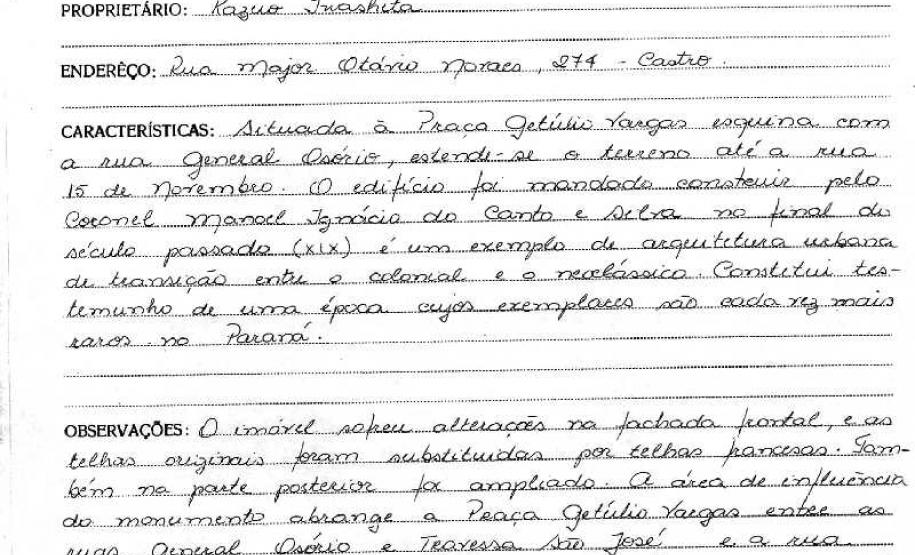 PROPRIETÁRIO: Kazuo Inashita
ENDERÊÇO: Rua Major Otávio Novaes, 274 - Castro.
CARACTERÍSTICAS: Situada à Praça Getúlio Vargas esquina com
a rua General Osório, estende-se o terreno até a rua
15 de Novembro. O edifício foi mandado construir pelo
Coronel Manoel Ignácio do Canto e Silva no final do
século passado (XIX) é um exemplo de arquitetura urbana
de transição entre o colonial e o neoclássico. Constitui tes-
temunho de uma época cujos exemplares são cada vez mais
raros no Paraná.
OBSERVAÇÕES: O imóvel sofreu alterações na fachada frontal, e as
telhas originais foram substituidas por telhas francesas. Tam-
bém na parte posterior foi ampliado. A área de influência
do monumento abrange a Praça Getúlio Vargas entre as
ruas General Osório e Travessa São José e a rua